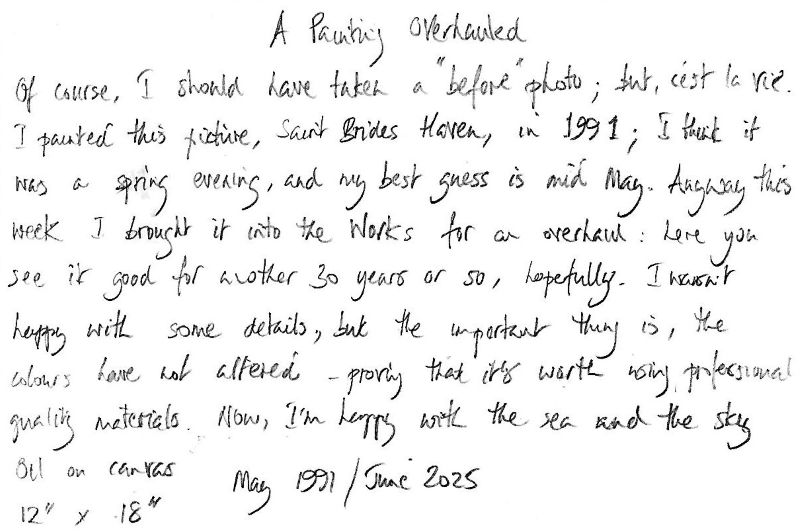 A Painting Overhauled
Of course, I should have taken a "before" photo; but, c'est la vie.
I painted this picture, Saint Brides Haven, in 1991; I think it
was a spring evening, and my best guess is mid May. Anyway this
week I brought it into the Works for an overhaul: here you
see it good for another 30 years or so, hopefully. I wasn't
happy with some details, but the important thing is, the
colours have not altered - proving that it's worth using professional
quality materials. Now, I'm happy with the sea and the sky
Oil on canvas May 1991/June 2025
12" x 18"